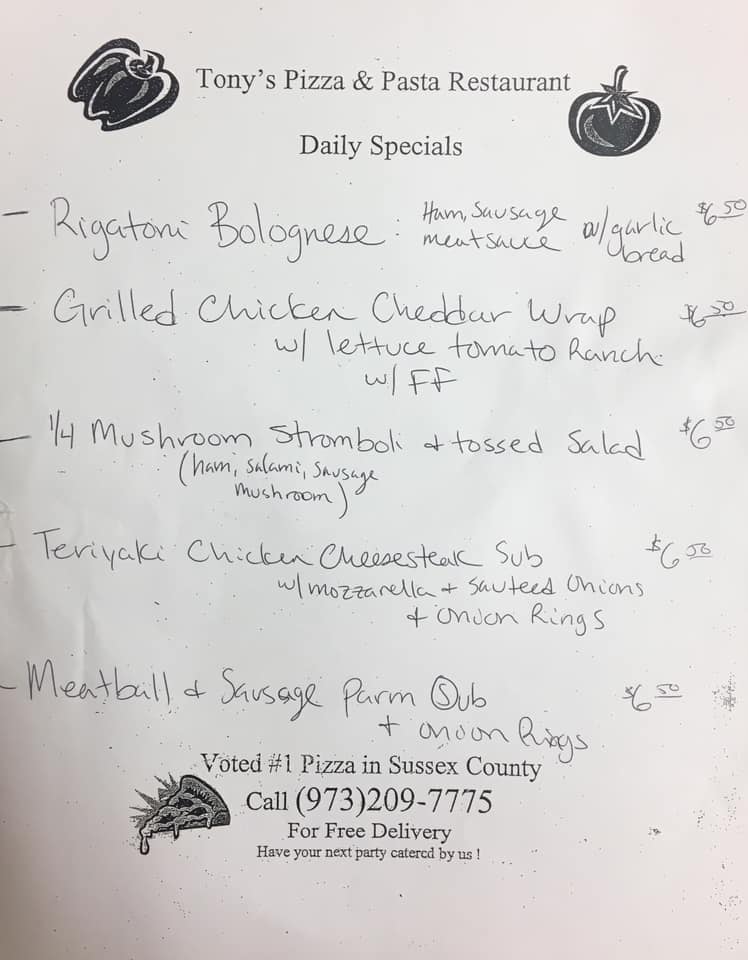 Tony's Pizza & Pasta Restaurant
Daily Specials
- Rigatoni Bolognese : Ham, Sausage meatsauce w/garlic bread $6.50
- Grilled Chicken Cheddar Wrap $6.50
w/ lettuce tomato Ranch
w/ FF
- 1/4 Mushroom Stromboli + tossed Salad $6.50
(ham, Salami, Sausage
mushroom)
- Teriyaki Chicken Cheesesteak Sub $6.50
w/mozzarella + sauteed Onions
+ Onion Rings
- Meatball + Sausage Parm Sub $6.50
+ onion Rings
Voted #1 Pizza in Sussex County
Call (973)209-7775
For Free Delivery
Have your next party catered by us !